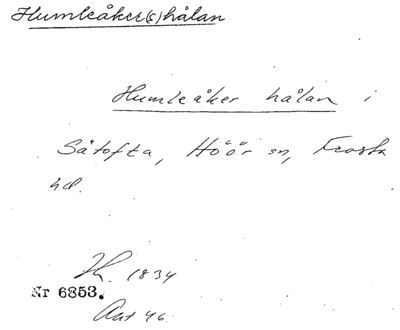 Humleåker(s)hålan
Humleåker hålan i
Såtofta, Höör sn, Frosta
hd.
1834
Nr 6853.
Ant 46